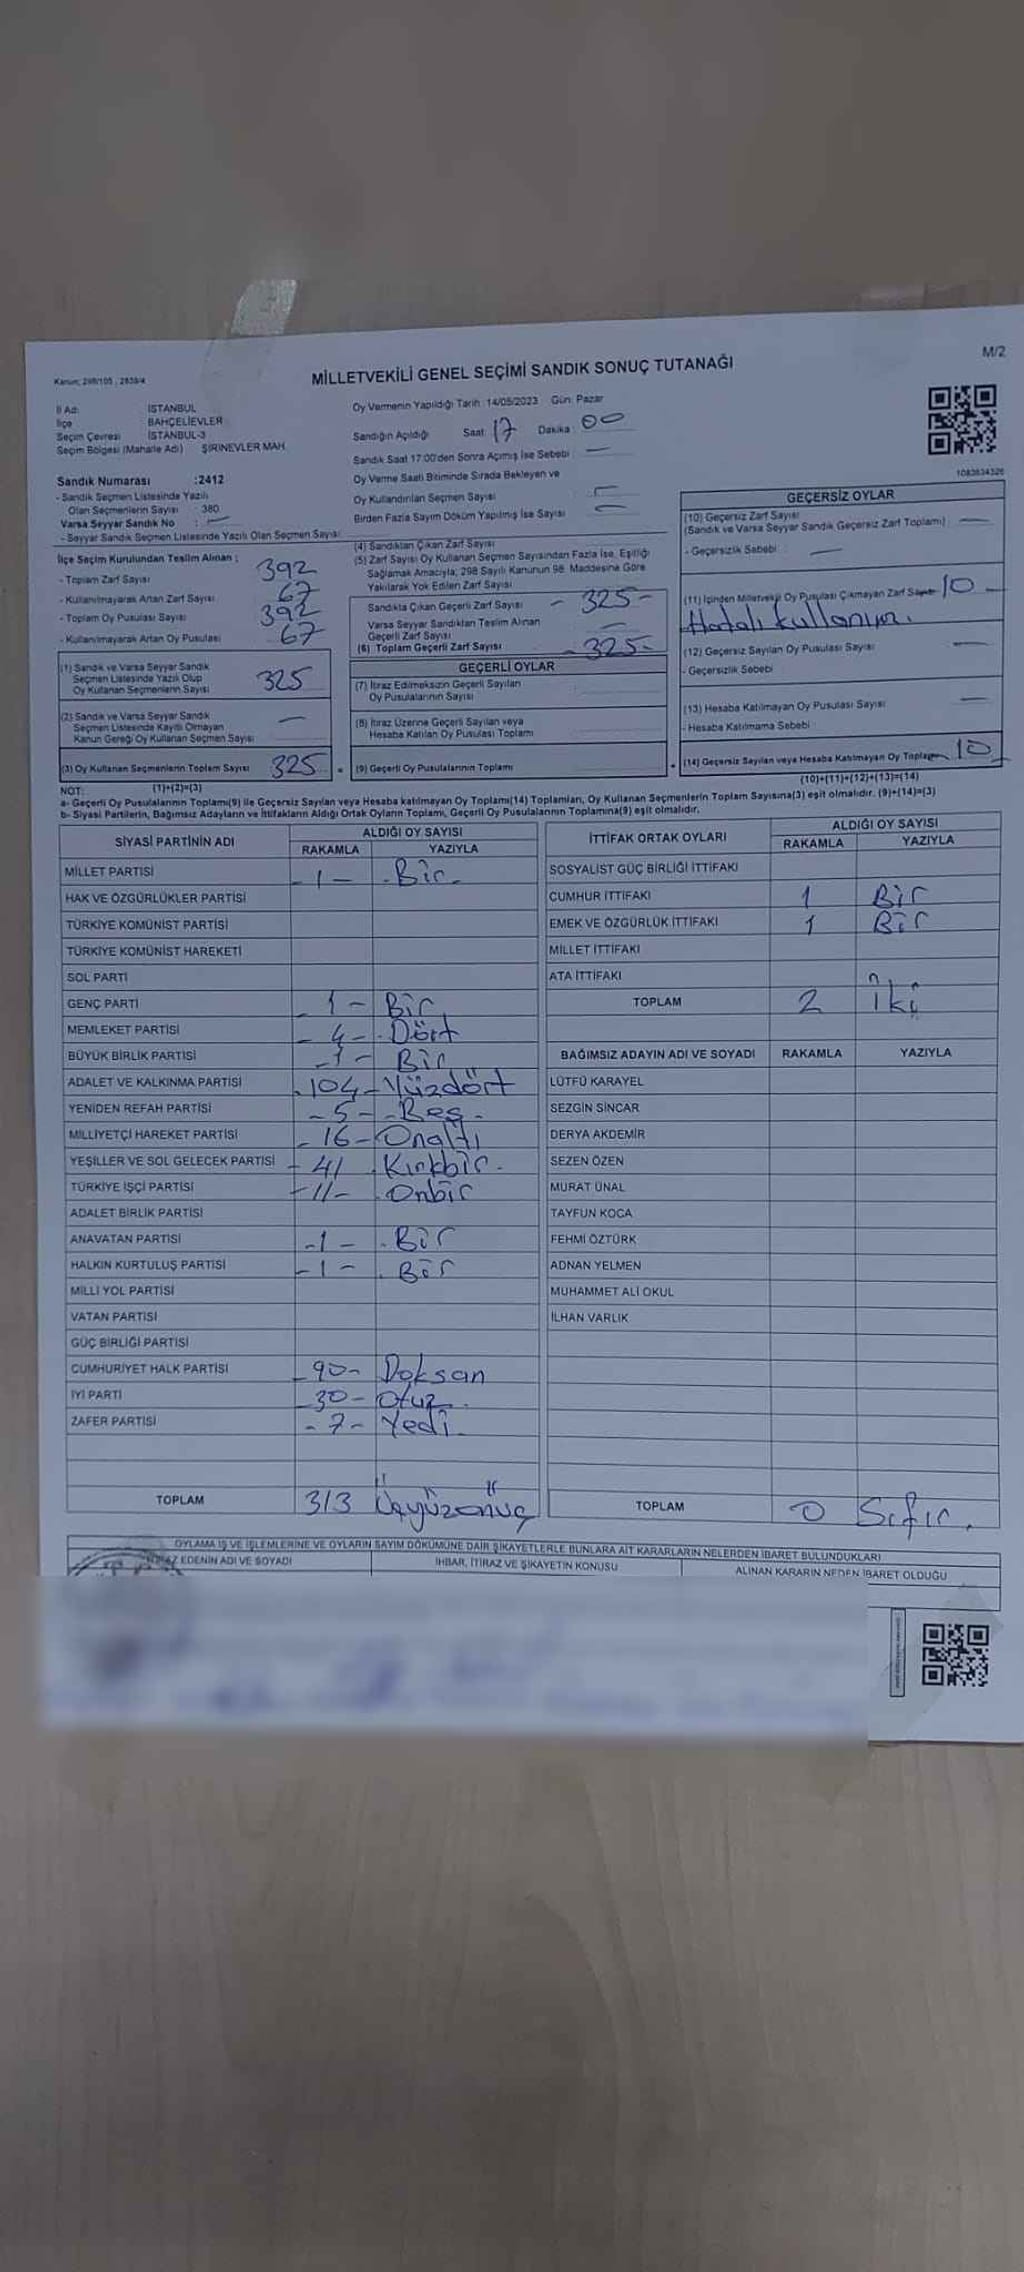 M/2
Kanun; 298/105 , 2839/4
MİLLETVEKİLİ GENEL SEÇİMİ SANDIK SONUÇ TUTANAĞI
İl Adı: İSTANBUL
İlçe BAHÇELİEVLER
Seçim Çevresi İSTANBUL-3
Seçim Bölgesi (Mahalle Adı) ŞİRİNEVLER MAH.
Oy Vermenin Yapıldığı Tarih :14/05/2023 Gün: Pazar
Sandığın Açıldığı Saat: 17 Dakika : 00
Sandık Saat 17:00'den Sonra Açılmış İse Sebebi : —
Oy Verme Saati Bitiminde Sırada Bekleyen ve
Oy Kullandırılan Seçmen Sayısı —
Birden Fazla Sayım Döküm Yapılmış İse Sayısı —
1083634326
Sandık Numarası :2412
- Sandık Seçmen Listesinde Yazılı
Olan Seçmenlerin Sayısı : 380
Varsa Seyyar Sandık No : —
- Seyyar Sandık Seçmen Listesinde Yazılı Olan Seçmen Sayısı
İlçe Seçim Kurulundan Teslim Alınan :
- Toplam Zarf Sayısı 392
- Kullanılmayarak Artan Zarf Sayısı 67
- Toplam Oy Pusulası Sayısı 392
- Kullanılmayarak Artan Oy Pusulası 67
(1) Sandık ve Varsa Seyyar Sandık
Seçmen Listesinde Yazılı Olup
Oy Kullanan Seçmenlerin Sayısı 325
(2) Sandık ve Varsa Seyyar Sandık
Seçmen Listesinde Kayıtlı Olmayan
Kanun Gereği Oy Kullanan Seçmen Sayısı —
(3) Oy Kullanan Seçmenlerin Toplam Sayısı 325
(1)+(2)=(3)
(4) Sandıktan Çıkan Zarf Sayısı
(5) Zarf Sayısı Oy Kullanan Seçmen Sayısından Fazla İse, Eşitliği
Sağlamak Amacıyla, 298 Sayılı Kanunun 98. Maddesine Göre
Yakılarak Yok Edilen Zarf Sayısı
Sandıkta Çıkan Geçerli Zarf Sayısı - 325-
Varsa Seyyar Sandıktan Teslim Alınan
Geçerli Zarf Sayısı —
(6) Toplam Geçerli Zarf Sayısı - 325-
GEÇERLİ OYLAR
(7) İtiraz Edilmeksizin Geçerli Sayılan
Oy Pusulalarının Sayısı
(8) İtiraz Üzerine Geçerli Sayılan veya
Hesaba Katılan Oy Pusulası Toplamı
= (9) Geçerli Oy Pusulalarının Toplamı
GEÇERSİZ OYLAR
(10) Geçersiz Zarf Sayısı
(Sandık ve Varsa Seyyar Sandık Geçersiz Zarf Toplamı) —
- Geçersizlik Sebebi : —
(11) İçinden Milletvekili Oy Pusulası Çıkmayan Zarf Sayısı 10 -
Hatalı kullanım.
(12) Geçersiz Sayılan Oy Pusulası Sayısı —
- Geçersizlik Sebebi
(13) Hesaba Katılmayan Oy Pusulası Sayısı —
- Hesaba Katılmama Sebebi
+ (14) Geçersiz Sayılan veya Hesaba Katılmayan Oy Toplamı 10
(10)+(11)+(12)+(13)=(14)
NOT:
a- Geçerli Oy Pusulalarının Toplamı(9) ile Geçersiz Sayılan veya Hesaba katılmayan Oy Toplamı(14) Toplamları, Oy Kullanan Seçmenlerin Toplam Sayısına(3) eşit olmalıdır. (9)+(14)=(3)
b- Siyasi Partilerin, Bağımsız Adayların ve İttifakların Aldığı Ortak Oyların Toplamı, Geçerli Oy Pusulalarının Toplamına(9) eşit olmalıdır.
SİYASİ PARTİNİN ADI ALDIĞI OY SAYISI
RAKAMLA YAZIYLA
MİLLET PARTİSİ -1- .Bir.
HAK VE ÖZGÜRLÜKLER PARTİSİ
TÜRKİYE KOMÜNİST PARTİSİ
TÜRKİYE KOMÜNİST HAREKETİ
SOL PARTİ
GENÇ PARTİ - 1 - Bir
MEMLEKET PARTİSİ - 4 - . Dört
BÜYÜK BİRLİK PARTİSİ -1- Bir
ADALET VE KALKINMA PARTİSİ .104- Yüzdört
YENİDEN REFAH PARTİSİ -5- -Beş.
MİLLİYETÇİ HAREKET PARTİSİ -16- Onaltı
YEŞİLLER VE SOL GELECEK PARTİSİ - 41 .Kırkbir.
TÜRKİYE İŞÇİ PARTİSİ -11- . Onbir
ADALET BİRLİK PARTİSİ
ANAVATAN PARTİSİ -1- . Bir
HALKIN KURTULUŞ PARTİSİ -1- . Bir
MİLLİ YOL PARTİSİ
VATAN PARTİSİ
GÜÇ BİRLİĞİ PARTİSİ
CUMHURİYET HALK PARTİSİ -90- Doksan
İYİ PARTİ -30- Otuz.
ZAFER PARTİSİ - 7 - Yedi.
TOPLAM 313 Üçyüzonüç
İTTİFAK ORTAK OYLARI ALDIĞI OY SAYISI
RAKAMLA YAZIYLA
SOSYALİST GÜÇ BİRLİĞİ İTTİFAKI
CUMHUR İTTİFAKI 1 Bir
EMEK VE ÖZGÜRLÜK İTTİFAKI 1 Bir
MİLLET İTTİFAKI
ATA İTTİFAKI
TOPLAM 2 İki
BAĞIMSIZ ADAYIN ADI VE SOYADI RAKAMLA YAZIYLA
LÜTFÜ KARAYEL
SEZGİN SİNCAR
DERYA AKDEMİR
SEZEN ÖZEN
MURAT ÜNAL
TAYFUN KOCA
FEHMİ ÖZTÜRK
ADNAN YELMEN
MUHAMMET ALİ OKUL
İLHAN VARLIK
TOPLAM 0 Sıfır.
OYLAMA İŞ VE İŞLEMLERİNE VE OYLARIN SAYIM DÖKÜMÜNE DAİR ŞİKAYETLERLE BUNLARA AİT KARARLARIN NELERDEN İBARET BULUNDUKLARI
EDENİN ADI VE SOYADI İHBAR, İTİRAZ VE ŞİKAYETİN KONUSU ALINAN KARARIN NEDEN İBARET OLDUĞU